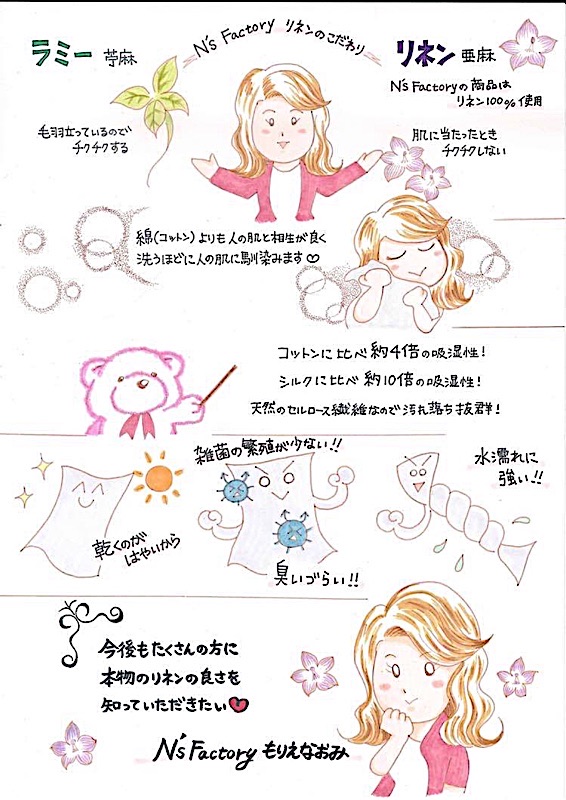 N's Factory リネンのこだわり
ラミー 苧麻
リネン 亜麻
N's Factoryの商品は
リネン100%使用
毛羽立っているので
チクチクする
肌に当たったとき
チクチクしない
綿(コットン)よりも人の肌と相性が良く
洗うほどに人の肌に馴染みます♡
コットンに比べ約4倍の吸湿性!
シルクに比べ約10倍の吸湿性!
天然のセルロース繊維なので汚れ落ち抜群!
乾くのが
はやいから
雑菌の繁殖が少ない!!
臭いづらい!!
水濡れに
強い!!
今後もたくさんの方に
本物のリネンの良さを
知っていただきたい♥
N's Factory もりえなおみ